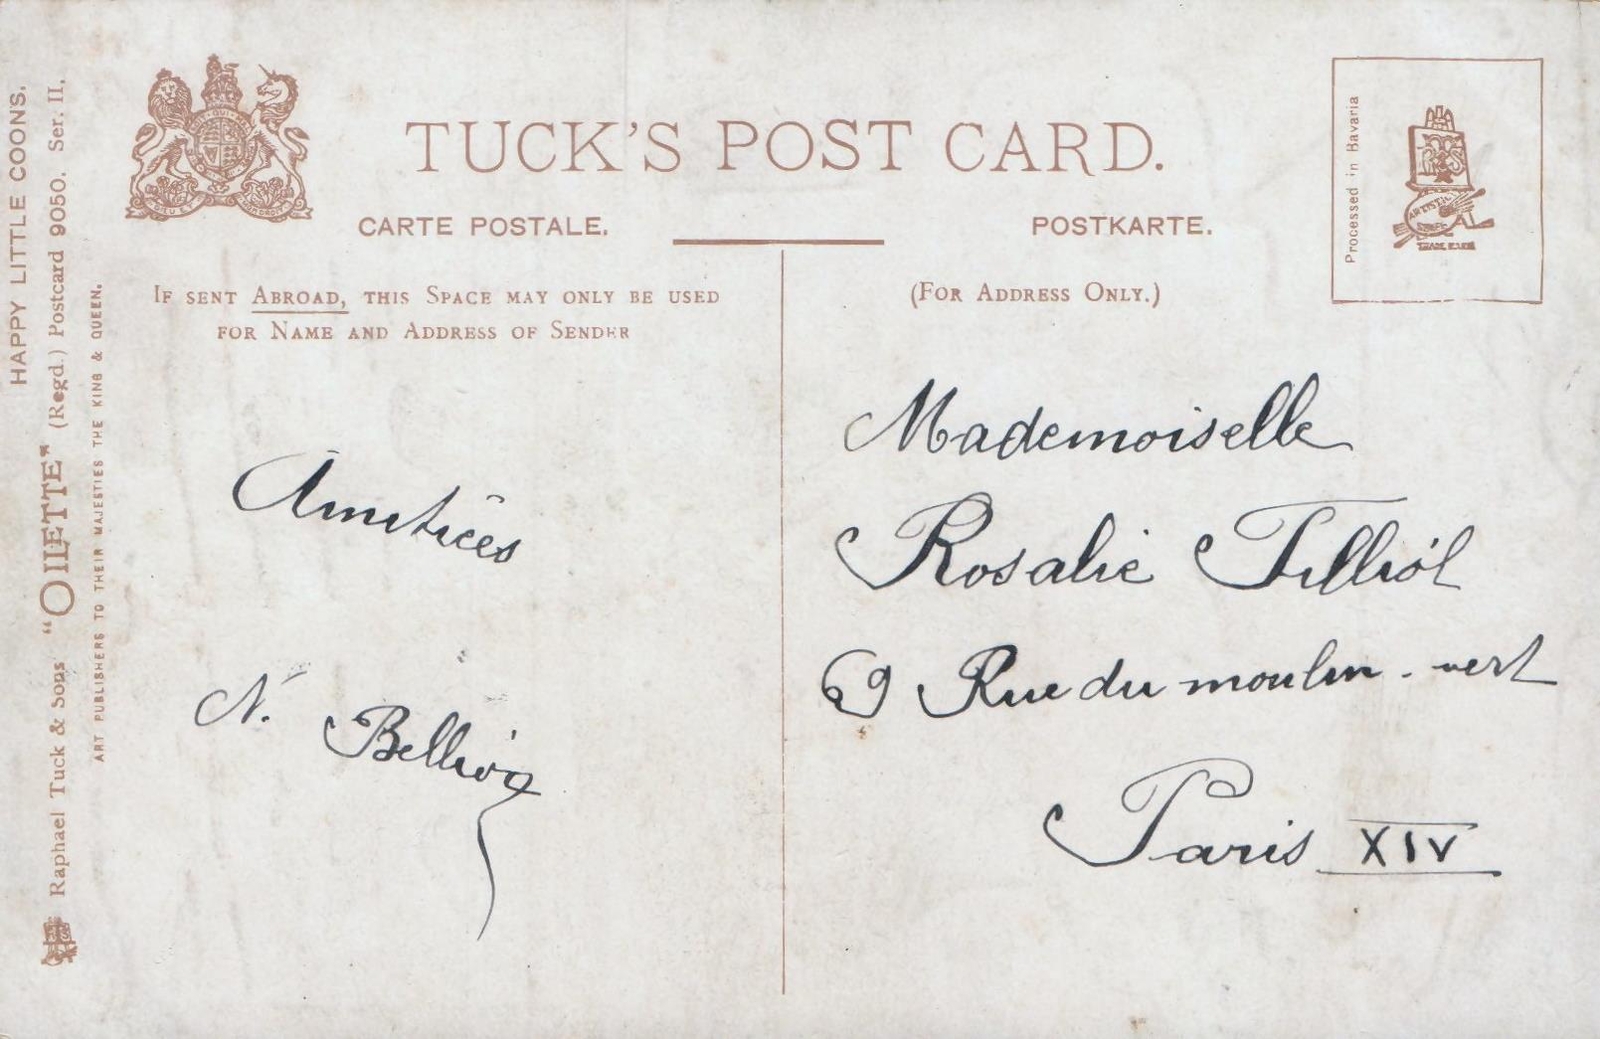 HAPPY LITTLE COONS.
Raphael Tuck & Sons "OILETTE" (Regd.) Postcard 9050. Ser. II.
ART PUBLISHERS TO THEIR MAJESTIES THE KING & QUEEN.
TUCK'S POST CARD.
CARTE POSTALE.
POSTKARTE.
Processed in Bavaria
IF SENT ABROAD, THIS SPACE MAY ONLY BE USED
FOR NAME AND ADDRESS OF SENDER
(FOR ADDRESS ONLY.)
Amitiées
N.
Mademoiselle
Rosalie
69 Rue du moulin-vert
Paris XIV